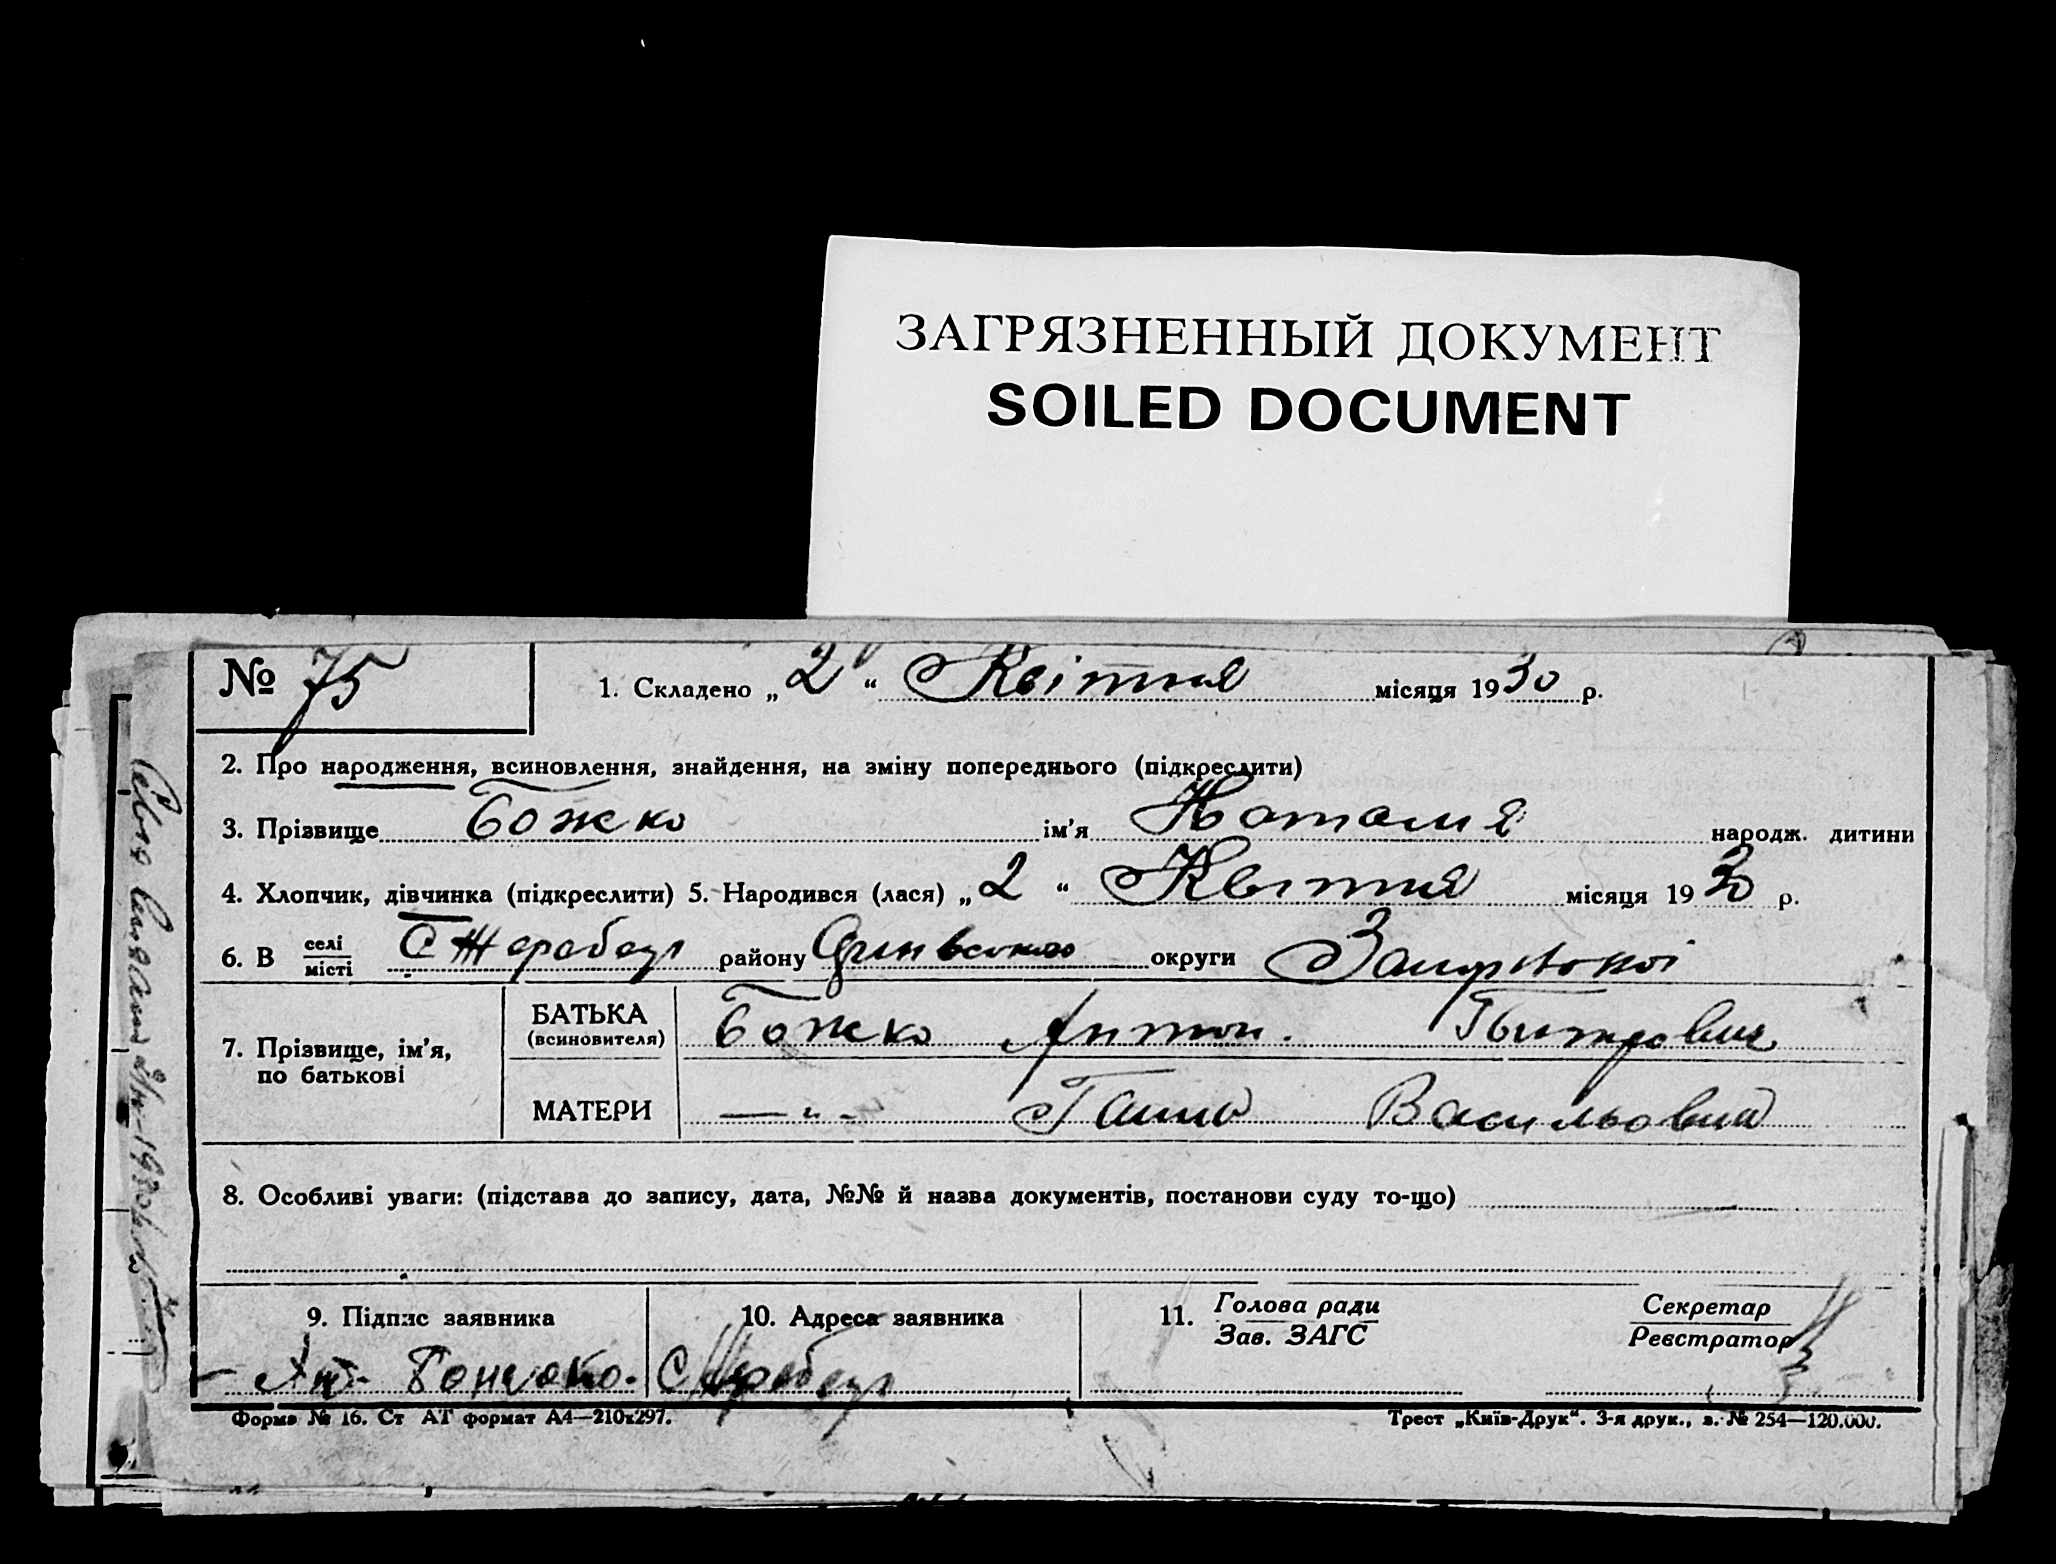 ЗАГРЯЗНЕННЫЙ ДОКУМЕНТ
SOILED DOCUMENT
№ 75
1. Складено „ 2 “ Квітня місяця 1930 р.
2. Про народження, всиновлення, знайдення, на зміну попереднього (підкреслити)
3. Прізвище Божко ім'я Наталия народж. дитини
4. Хлопчик, дівчинка (підкреслити) 5. Народився (лася) „ 2 “ Квітня місяця 1930 р.
6. В селі/місті С Жеребець району округи
7. Прізвище, ім'я, по батькові
БАТЬКА (всиновителя) Божко Антон.
МАТЕРИ — „ - Ганна Васильовна
8. Особливі уваги: (підстава до запису, дата, №№ й назва документів, постанови суду то-що)
9. Підпис заявника
10. Адреса заявника
11. Голова ради
Зав. ЗАГС
Секретар
Реєстратор
Ант. С Жеребець
Форма № 16. Ст АТ формат А4—210x297.
Трест „Київ-Друк“. 3-я друк., з. № 254—120.000.